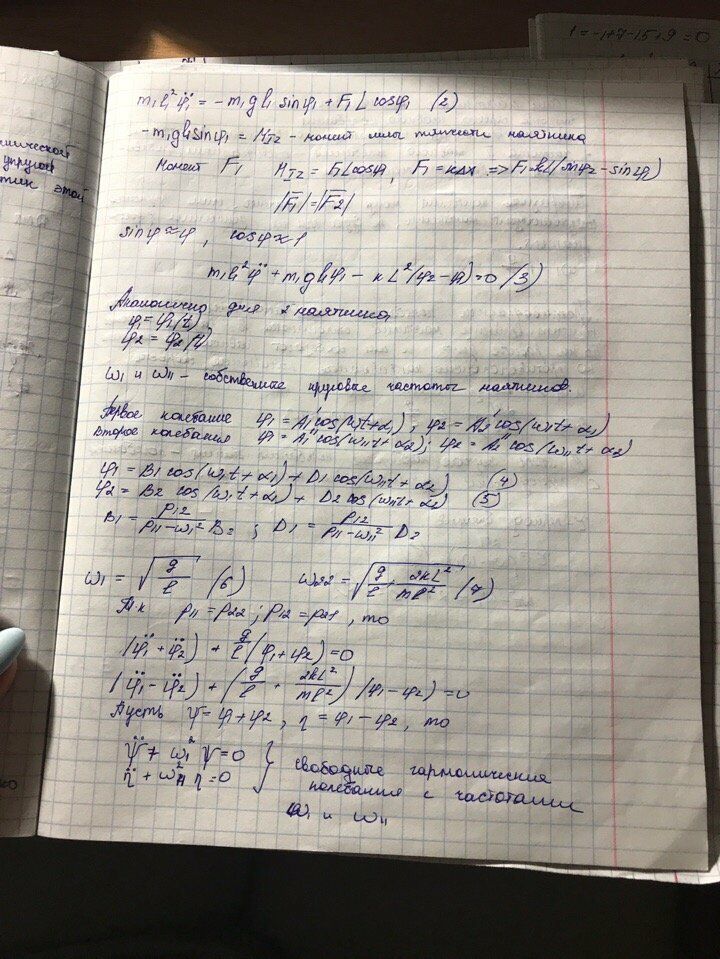 1=-1+7-15+9=0
m₁l₁²φ̈₁ = -m₁gl₁ sinφ₁ + F₁L cosφ₁ (2)
-m₁gl₁sinφ₁ = M₁z - момент силы тяжести маятника
Момент F₁ M₁z = F₁Lcosφ₁, F₁ = kΔx => F₁=kL(sinφ₂-sinφ₁)
|F̅₁|=|F̅₂|
sinφ≈φ, cosφ≈1
m₁l₁²φ̈ + m₁gl₁φ₁ - kL²(φ₂-φ₁)=0 (3)
Аналогично для 2 маятника
φ₁=φ₁(t)
φ₂=φ₂(t)
ω₁ и ω₁₁ - собственные круговые частоты маятников.
Первое колебание φ₁ = A₁'cos(ω₁t+α₁), φ₂ = A₂'cos(ω₁t+α₁)
Второе колебания φ₁ = A₁''cos(ω₁₁t+α₂); φ₂ = A₂''cos(ω₁₁t+α₂)
φ₁ = B₁ cos(ω₁t+α₁) + D₁ cos(ω₁₁t+α₂) (4)
φ₂ = B₂ cos(ω₁t+α₁) + D₂ cos(ω₁₁t+α₂) (5)
B₁ = p₁₂/(p₁₁-ω₁²) B₂; D₁ = p₁₂/(p₁₁-ω₁₁²) D₂
ω₁ = √(g/l) (6) ω₂₂ = √(g/l + 2kL²/ml²) (7)
Т.к p₁₁ = p₂₂; p₁₂ = p₂₁, то
(φ̈₁+φ̈₂) + g/l (φ₁+φ₂)=0
(φ̈₁-φ̈₂) + (g/l + 2kL²/ml²) (φ₁-φ₂)=0
Пусть ψ=φ₁+φ₂, η=φ₁-φ₂, то
ψ̈ + ω₁²ψ=0
η̈ + ω₁₁²η=0
} свободные гармонические
колебания с частотами
ω₁ и ω₁₁
упругой
этой